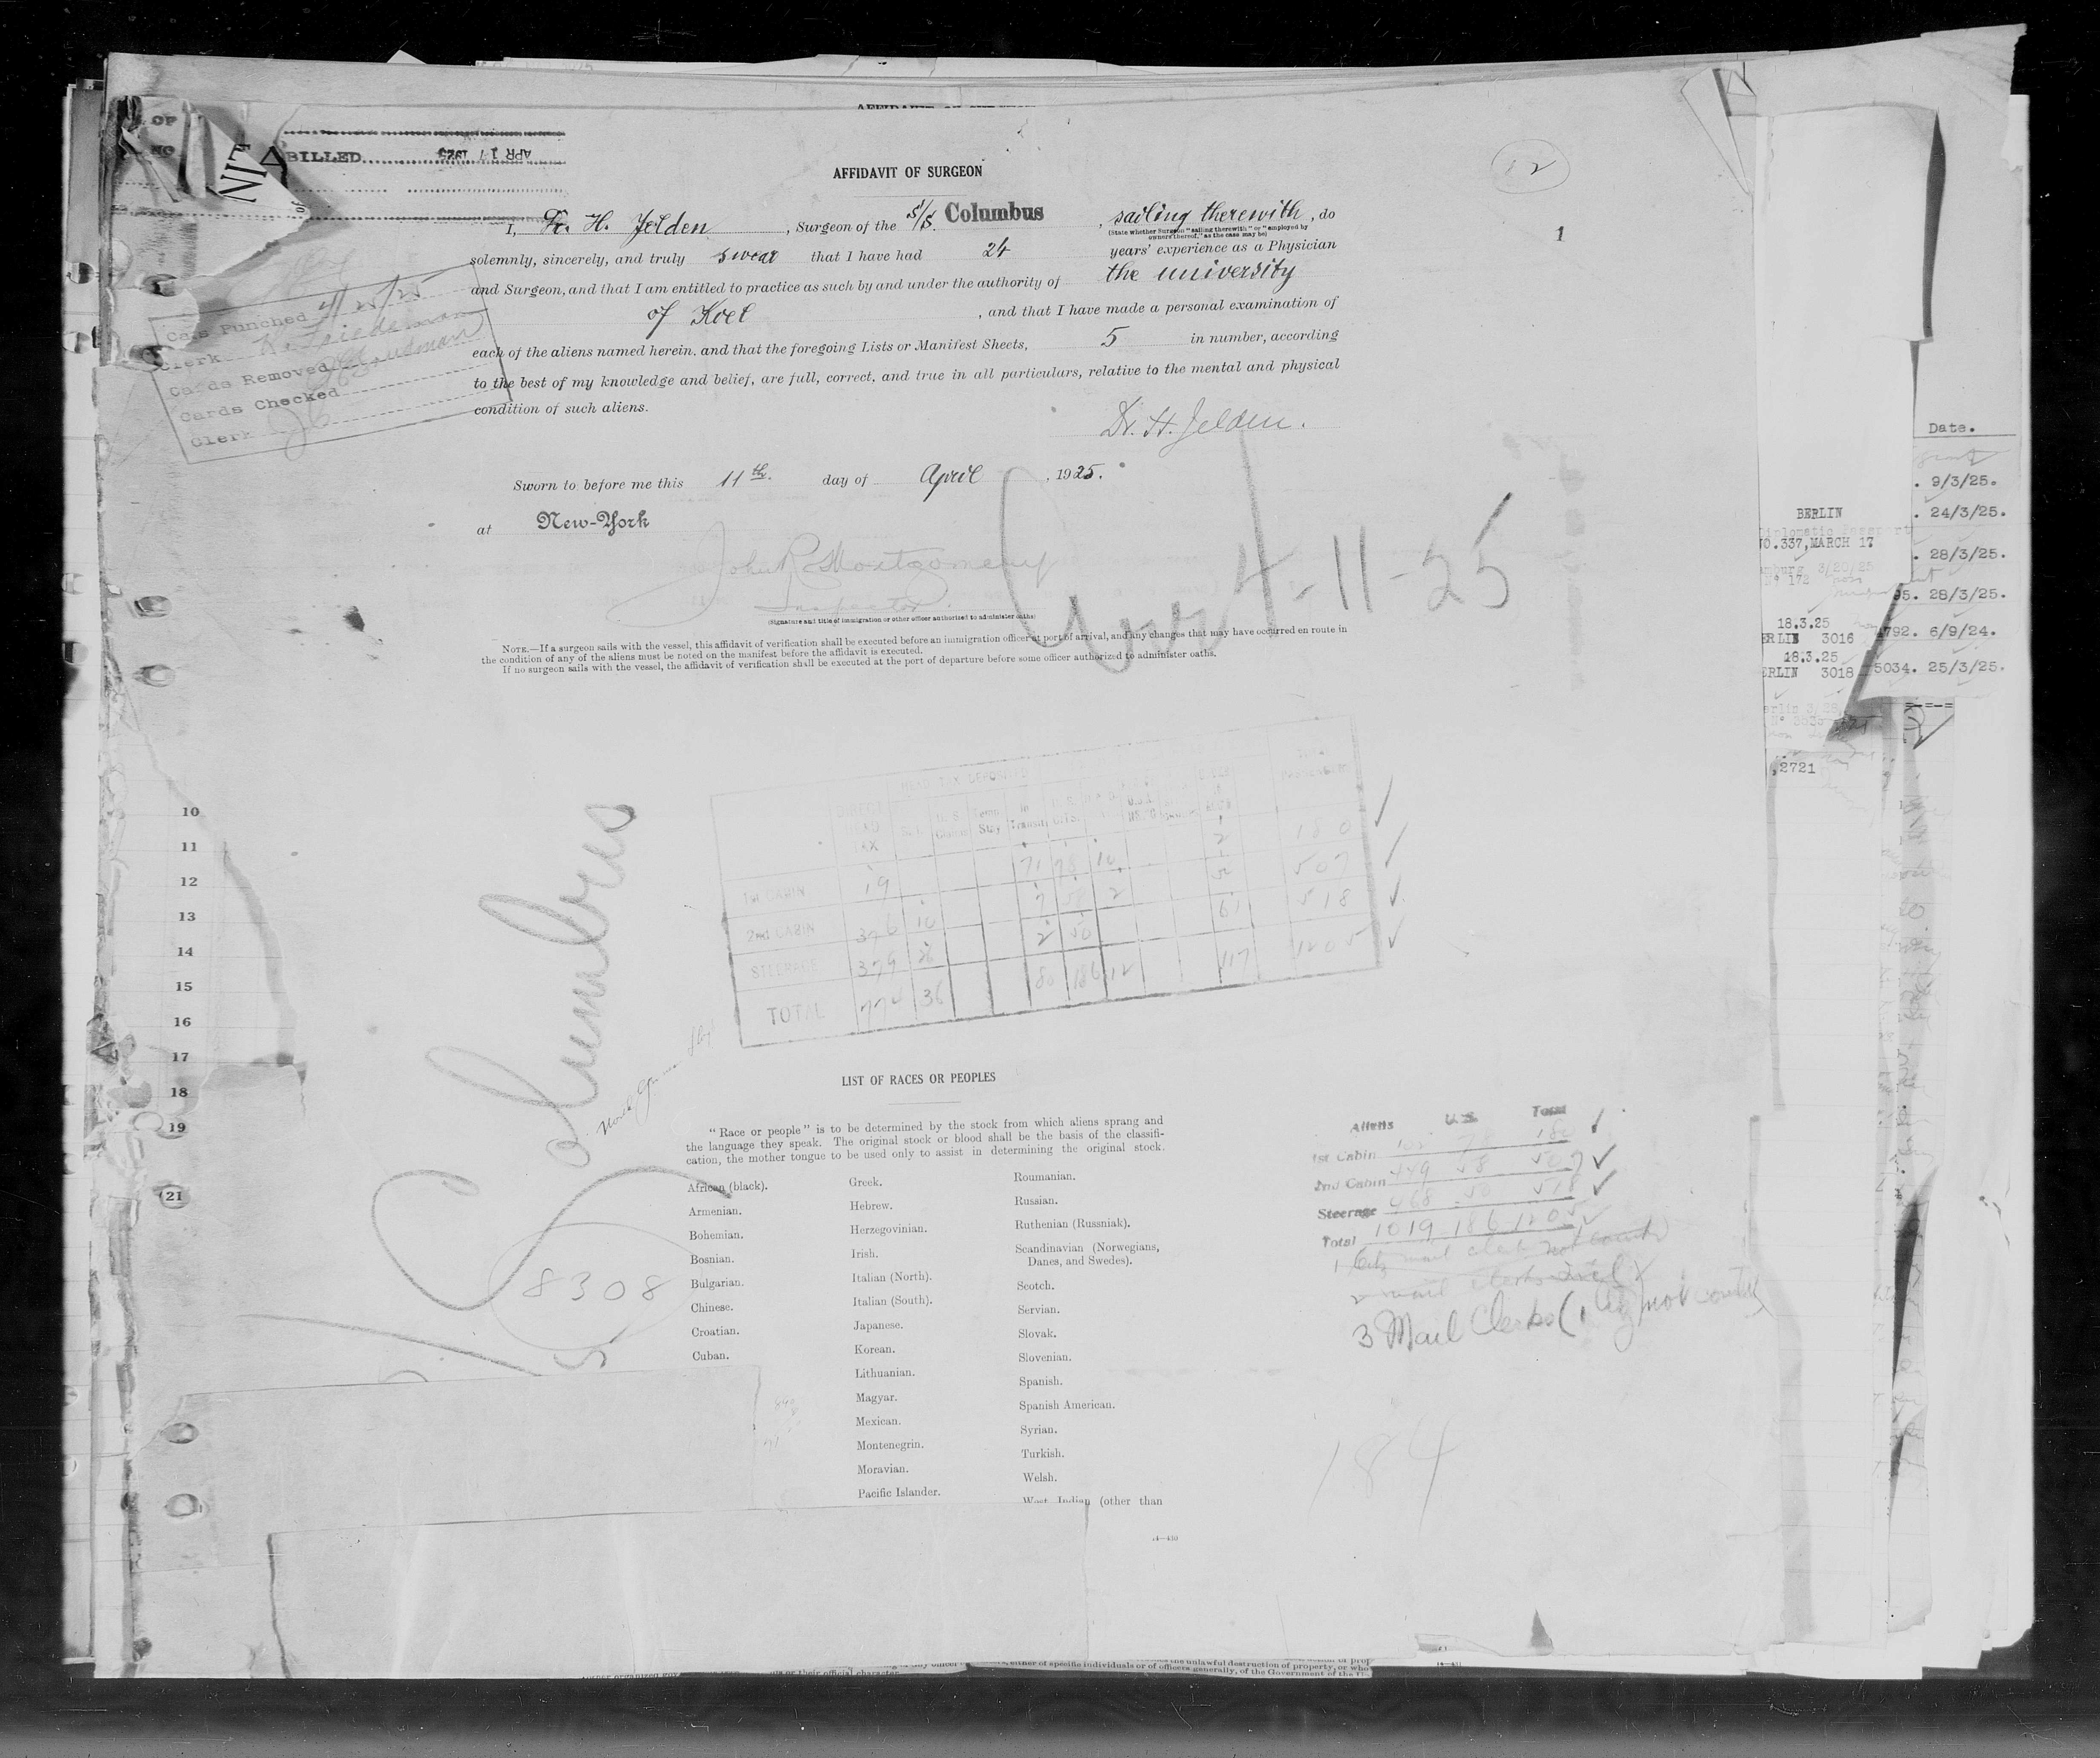 OF
NO
NIT
of
BILLED APR 17 1925
12
AFFIDAVIT OF SURGEON
1
I, Dr. H. Jelden, Surgeon of the S/S. Columbus, sailing therewith, do
(State whether Surgeon "sailing therewith" or "employed by
owners thereof," as the case may be)
solemnly, sincerely, and truly swear that I have had 24 years' experience as a Physician
and Surgeon, and that I am entitled to practice as such by and under the authority of the university
of Kiel, and that I have made a personal examination of
each of the aliens named herein, and that the foregoing Lists or Manifest Sheets, 5 in number, according
to the best of my knowledge and belief, are full, correct, and true in all particulars, relative to the mental and physical
condition of such aliens.
Dr. H. Jelden.
Sworn to before me this 11th. day of April, 1925.
at New-York
John R. Montgomery
Inspector
(Signature and title of immigration or other officer authorized to administer oaths)
NOTE.—If a surgeon sails with the vessel, this affidavit of verification shall be executed before an immigration officer at port of arrival, and any changes that may have occurred en route in
the condition of any of the aliens must be noted on the manifest before the affidavit is executed.
If no surgeon sails with the vessel, the affidavit of verification shall be executed at the port of departure before some officer authorized to administer oaths.
4-11-25
Cards Punched 4/25/25
Clerk
Cards Removed
Cards Checked
Clerk
Columbus
8308
HEAD TAX DEPOSITED
1st CABIN 19 71 78 10 2 180
2nd CABIN 376 10 7 58 2 507
STEERAGE 379 26 2 50 61 518
TOTAL 774 36 80 186 12 117 1205
LIST OF RACES OR PEOPLES
"Race or people" is to be determined by the stock from which aliens sprang and
the language they speak. The original stock or blood shall be the basis of the classifi-
cation, the mother tongue to be used only to assist in determining the original stock.
African (black).
Armenian.
Bohemian.
Bosnian.
Bulgarian.
Chinese.
Croatian.
Cuban.
Greek.
Hebrew.
Herzegovinian.
Irish.
Italian (North).
Italian (South).
Japanese.
Korean.
Lithuanian.
Magyar.
Mexican.
Montenegrin.
Moravian.
Pacific Islander.
Roumanian.
Russian.
Ruthenian (Russniak).
Scandinavian (Norwegians,
Danes, and Swedes).
Scotch.
Servian.
Slovak.
Slovenian.
Spanish.
Spanish American.
Syrian.
Turkish.
Welsh.
West Indian (other than
Aliens U.S. Total
1st Cabin 102 78 180
2nd Cabin 449 58 507
Steerage 468 50 518
Total 1019 186 1205
3 Mail Clerks
184
10
11
12
13
14
15
16
17
18
19
21
BERLIN
Diplomatic Passport
NO.337, MARCH 17
Nº 172
18.3.25
BERLIN 3016
18.3.25
BERLIN 3018
,2721
Date.
9/3/25.
24/3/25.
28/3/25.
95. 28/3/25.
792. 6/9/24.
5034. 25/3/25.